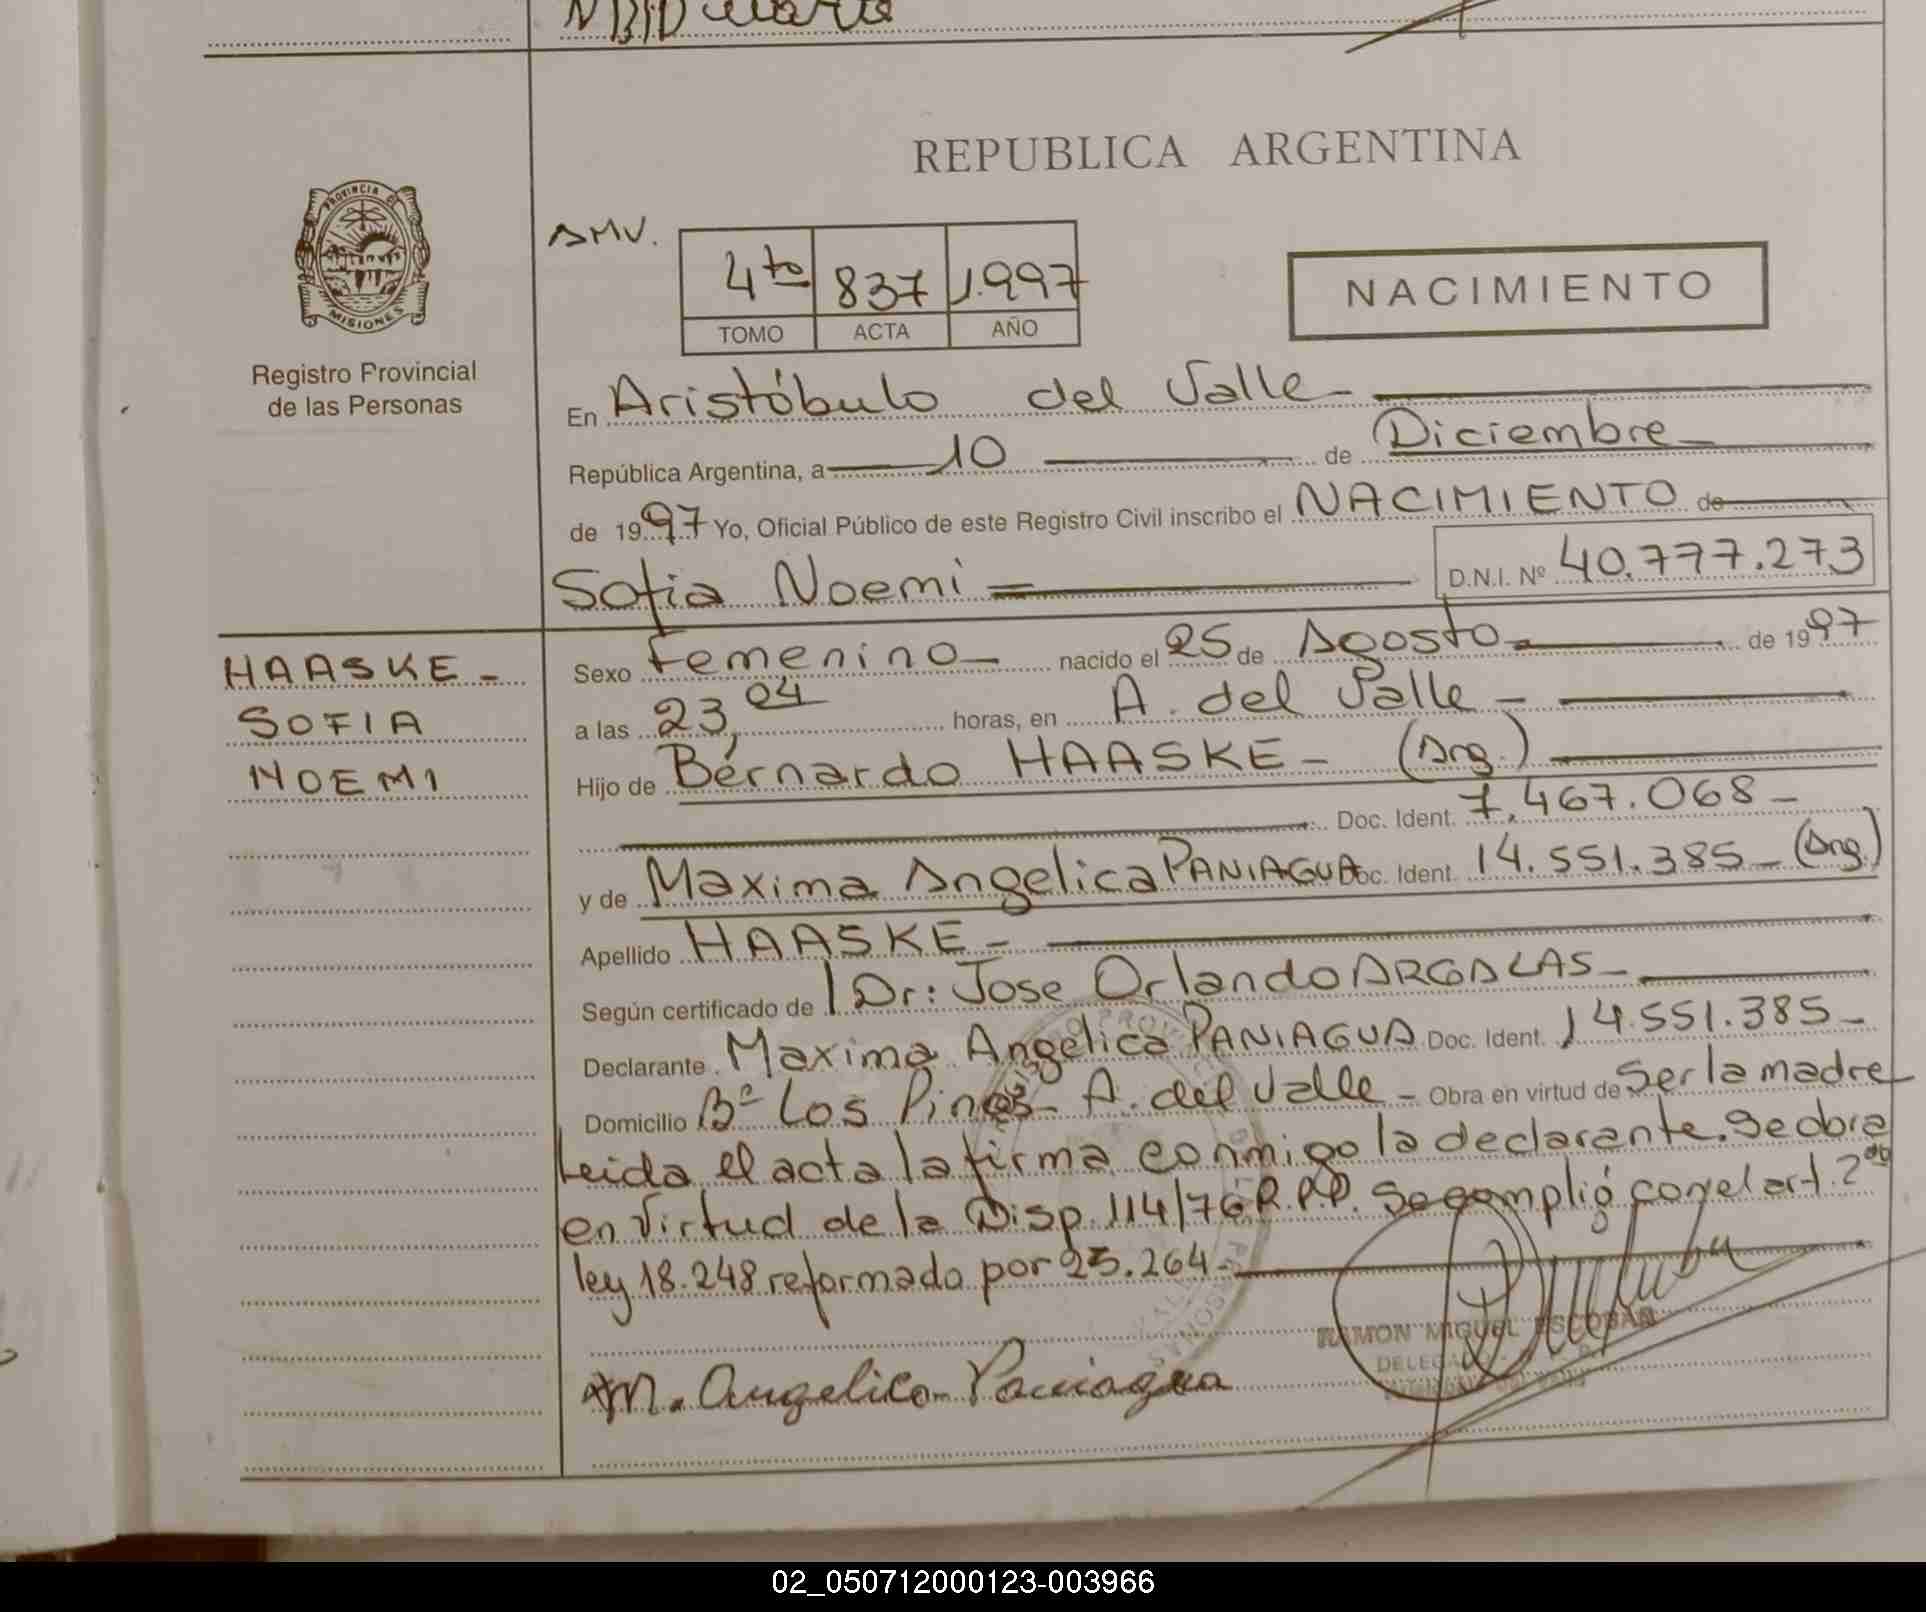 REPUBLICA ARGENTINA
PROVINCIA DE
MISIONES
Registro Provincial
de las Personas
AMV.
4to 837 1.997
TOMO ACTA AÑO
NACIMIENTO
En Aristóbulo del Valle -
República Argentina, a 10 de Diciembre -
de 1997 Yo, Oficial Público de este Registro Civil inscribo el NACIMIENTO de
Sofia Noemi = D.N.I. Nº 40.777.273
HAASKE -
SOFIA
NOEMI
Sexo Femenino - nacido el 25 de Agosto - de 1997
a las 23,04 horas, en A. del Valle -
Hijo de Bernardo HAASKE - (Arg.)
Doc. Ident. 7.467.068 -
y de Maxima Angelica PANIAGUA Doc. Ident. 14.551.385 - (Arg.)
Apellido HAASKE -
Según certificado de Dr: Jose Orlando ARGALAS -
Declarante Maxima Angelica PANIAGUA Doc. Ident. 14.551.385 -
Domicilio Bº Los Pinos - A. del Valle - Obra en virtud de Ser la madre
Leida el acta la firma conmigo la declarante. Se obra
en Virtud de la Disp. 114/76 R.P.P. Se complió con el art. 2do
ley 18.248 reformado por 23.264 -
RAMON MIGUEL ESCOBAR
DELEGADO
M. Angelica Paniagua
02_050712000123-003966